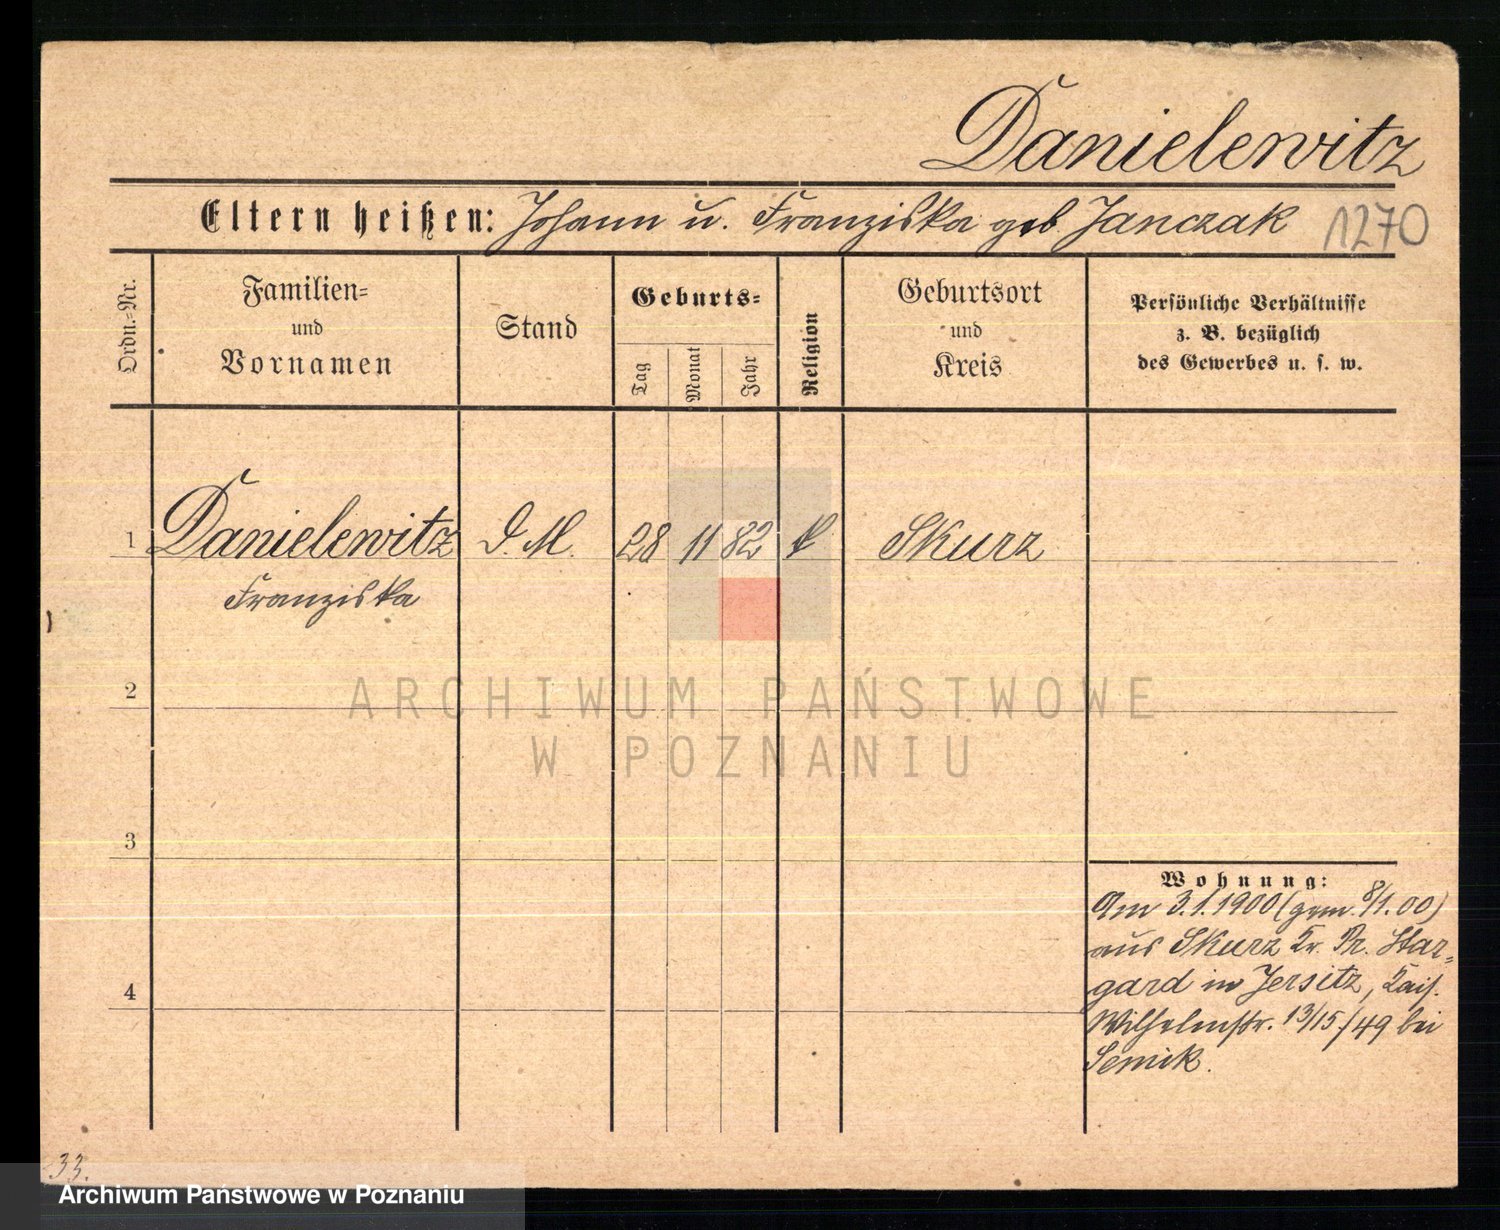 Danielewitz
Eltern heißen: Johann u. Franziska geb Janczak 1270
Ordn.-Nr.
Familien- und Vornamen
Stand
Geburts-
Tag
Monat
Jahr
Religion
Geburtsort und Kreis
Persönliche Verhältnisse
z. B. bezüglich
des Gewerbes u. s. w.
1 Danielewitz D. M. 28 11 82 k Skurz
Franziska
2
ARCHIWUM PAŃSTWOWE
W POZNANIU
3
Wohnung:
Am 3.1.1900 (gem. 8/1.00)
aus Skurz Kr. Pr. Star-
gard in Jersitz, Kais.
Wilhelmstr. 13/15./49 bei
Semik.
4
33.
Archiwum Państwowe w Poznaniu